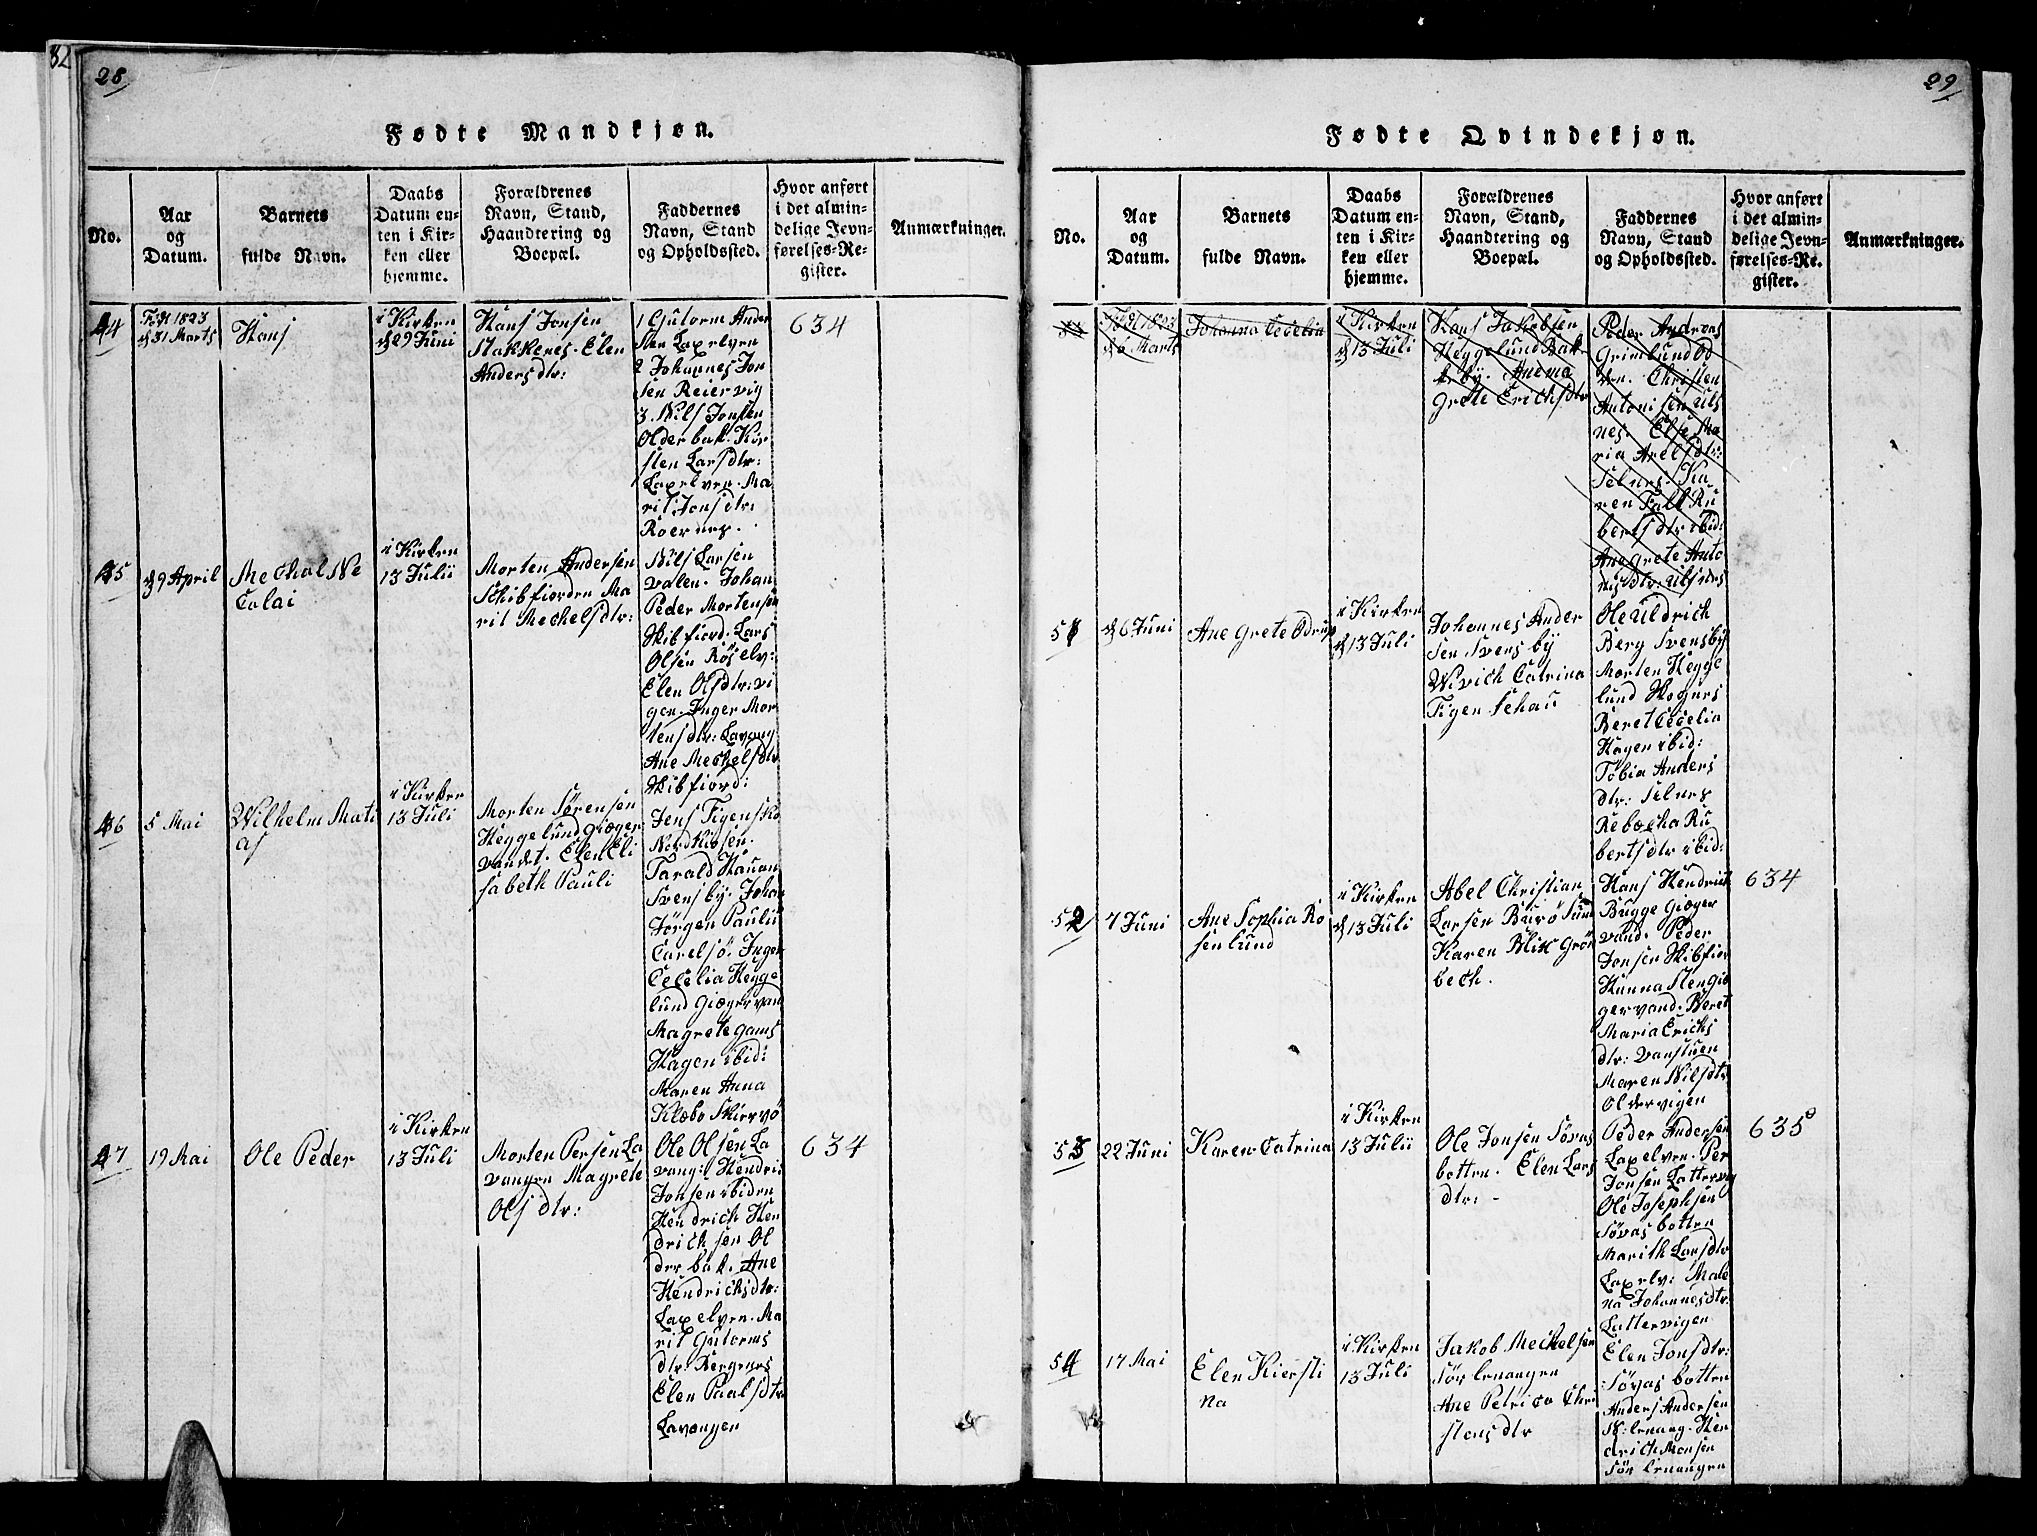 82
28
Fødte Mandkjøn.
No.
Aar
og
Datum.
Barnets
fulde Navn.
Daabs
Datum en-
ten i Kir-
ken eller
hjemme.
Forældrenes
Navn, Stand,
Haandtering og
Boepæl.
Faddernes
Navn, Stand
og Opholdssted.
Hvor anført
i det almin-
delige Jevn-
førelses-Re-
gister.
Anmærkninger.
44
1823
31 Marts
Hans
i Kirken
d 29 Juni
Hans Jonsen
Stakkenes. Elen
Andersdtr:
1 Gutorm Ander
sen Laxelven
2 Johannes Jon
sen Reiervig
3. Nils Jonsen
Olderbak. Kir
sten Larsdtr:
Laxelven. Ma
rit Jonsdtr:
634
45
d 9 April
Mechal Ne
Colai
i Kirken
13 Julii
Morten Andersen
Schibfiorden Ma
rit Mechelsdtr:
Nils Larsen
Valen. Johan
Peder Mortensen
Skibfiord. Lars
Olsen Røselv:
Elen Olsdtr: vi
gen. Inger Mor
tensdtr: Lavang
Ane Mechelsdtr
Skibfiord:
46
5 Mai
Wilhelm Mati
as
i Kirken
13 Juli
Morten Sørensen
Heggelund Giæger
vandet. Elen Eli
sabeth Pauli
Jens Tigen Sko
Nordkiosen.
Tarald Hauan
Svensby. Johan
Jørgen Pauli
Carelsø. Inger
Cecelia Hegge
lund Giægervand
Magrete Gams
Hagen ibid:
Maren Anna
Klæbo Skiervø
47
19 Mai
Ole Peder
i Kirken
13 Juli
Morten Persen La
vangen Magrete
Olsdtr:
Ole Olsen La
vang: Hendri
Jonsen ibiden
Hendrich Hen
drichsen Ol
derbak. Ane
Hendrichsdtr:
Laxelven. Ma
rit Gutorms
dtr: Bergenes
Elen Paalsdtr
Lavangen
634
29
Fødte Qvindekjøn.
No.
Aar
og
Datum.
Barnets
fulde Navn.
Daabs
Datum en-
ten i Kir-
ken eller
hjemme.
Forældrenes
Navn, Stand,
Haandtering og
Boepæl.
Faddernes
Navn, Stand
og Opholdssted.
Hvor anført
i det almin-
delige Jevn-
førelses-Re-
gister.
Anmærkninger.
1823
d 6 Marts
Johanna Cecelia
i Kirken
d 13 Juli
Hans Jakobsen
Heggelund Bak
keby. Anema
grete Erichsdtr
Peder Andreas
Grimlund Od
Christen
Antonisen Uls
nes. Else Ma
ria Axelsdtr:
Selnes. Ka
ren Falk Ru
bertsdtr ibid:
Anegrete Anto
nisdtr: Ulsnes
51
d 6 Juni
Ane Grete Odrup
i Kirken
d 13 Juli
Johannes Ander
sen Svensby
Wivich Catrina
Tigen Schau
Ole Uldrich
Berg Svensby
Morten Hegge
lund Skognes
Beret Cecelia
Hagen ibid:
Tobia Anders
dtr: Selnes
Rebæcha Ru
bertsdtr ibid:
52
7 Juni
Ane Sophia Ro
senlund
i Kirken
d 13 Juli
Abel Christian
Larsen Burøsund
Karen Blix Grøn
bech.
Hans Hendrich
Bugge Giæger
vand. Peder
Jonsen Skibfior
Hanna Sten Giæ
gervand. Beret
Maria Erichs
dtr: Vanstuen
Maren Nilsdtr
Oldervigen
634
53
22 Juni
Karen Catrina
i Kirken
13 Julii
Ole Jonsen Søvas
botten. Elen Lars
dtr: -
Peder Andersen
Laxelven. Per
Jonsen Lattervig
Ole Josephsen
Søvasbotten
Marith Larsdtr
Laxelv: Male
na Johannesdtr:
Lattervigen
635
54
17 Mai
Elen Kiersti
na
i Kirken
13 Juli
Jakob Mechelsen
Sørlenangen
Ane Petrica Chri
stensdtr
Elen Jonsdtr:
Søvasbotten
Anders Andersen
N: lenang. Hen
drich Monsen
Sørlenangen